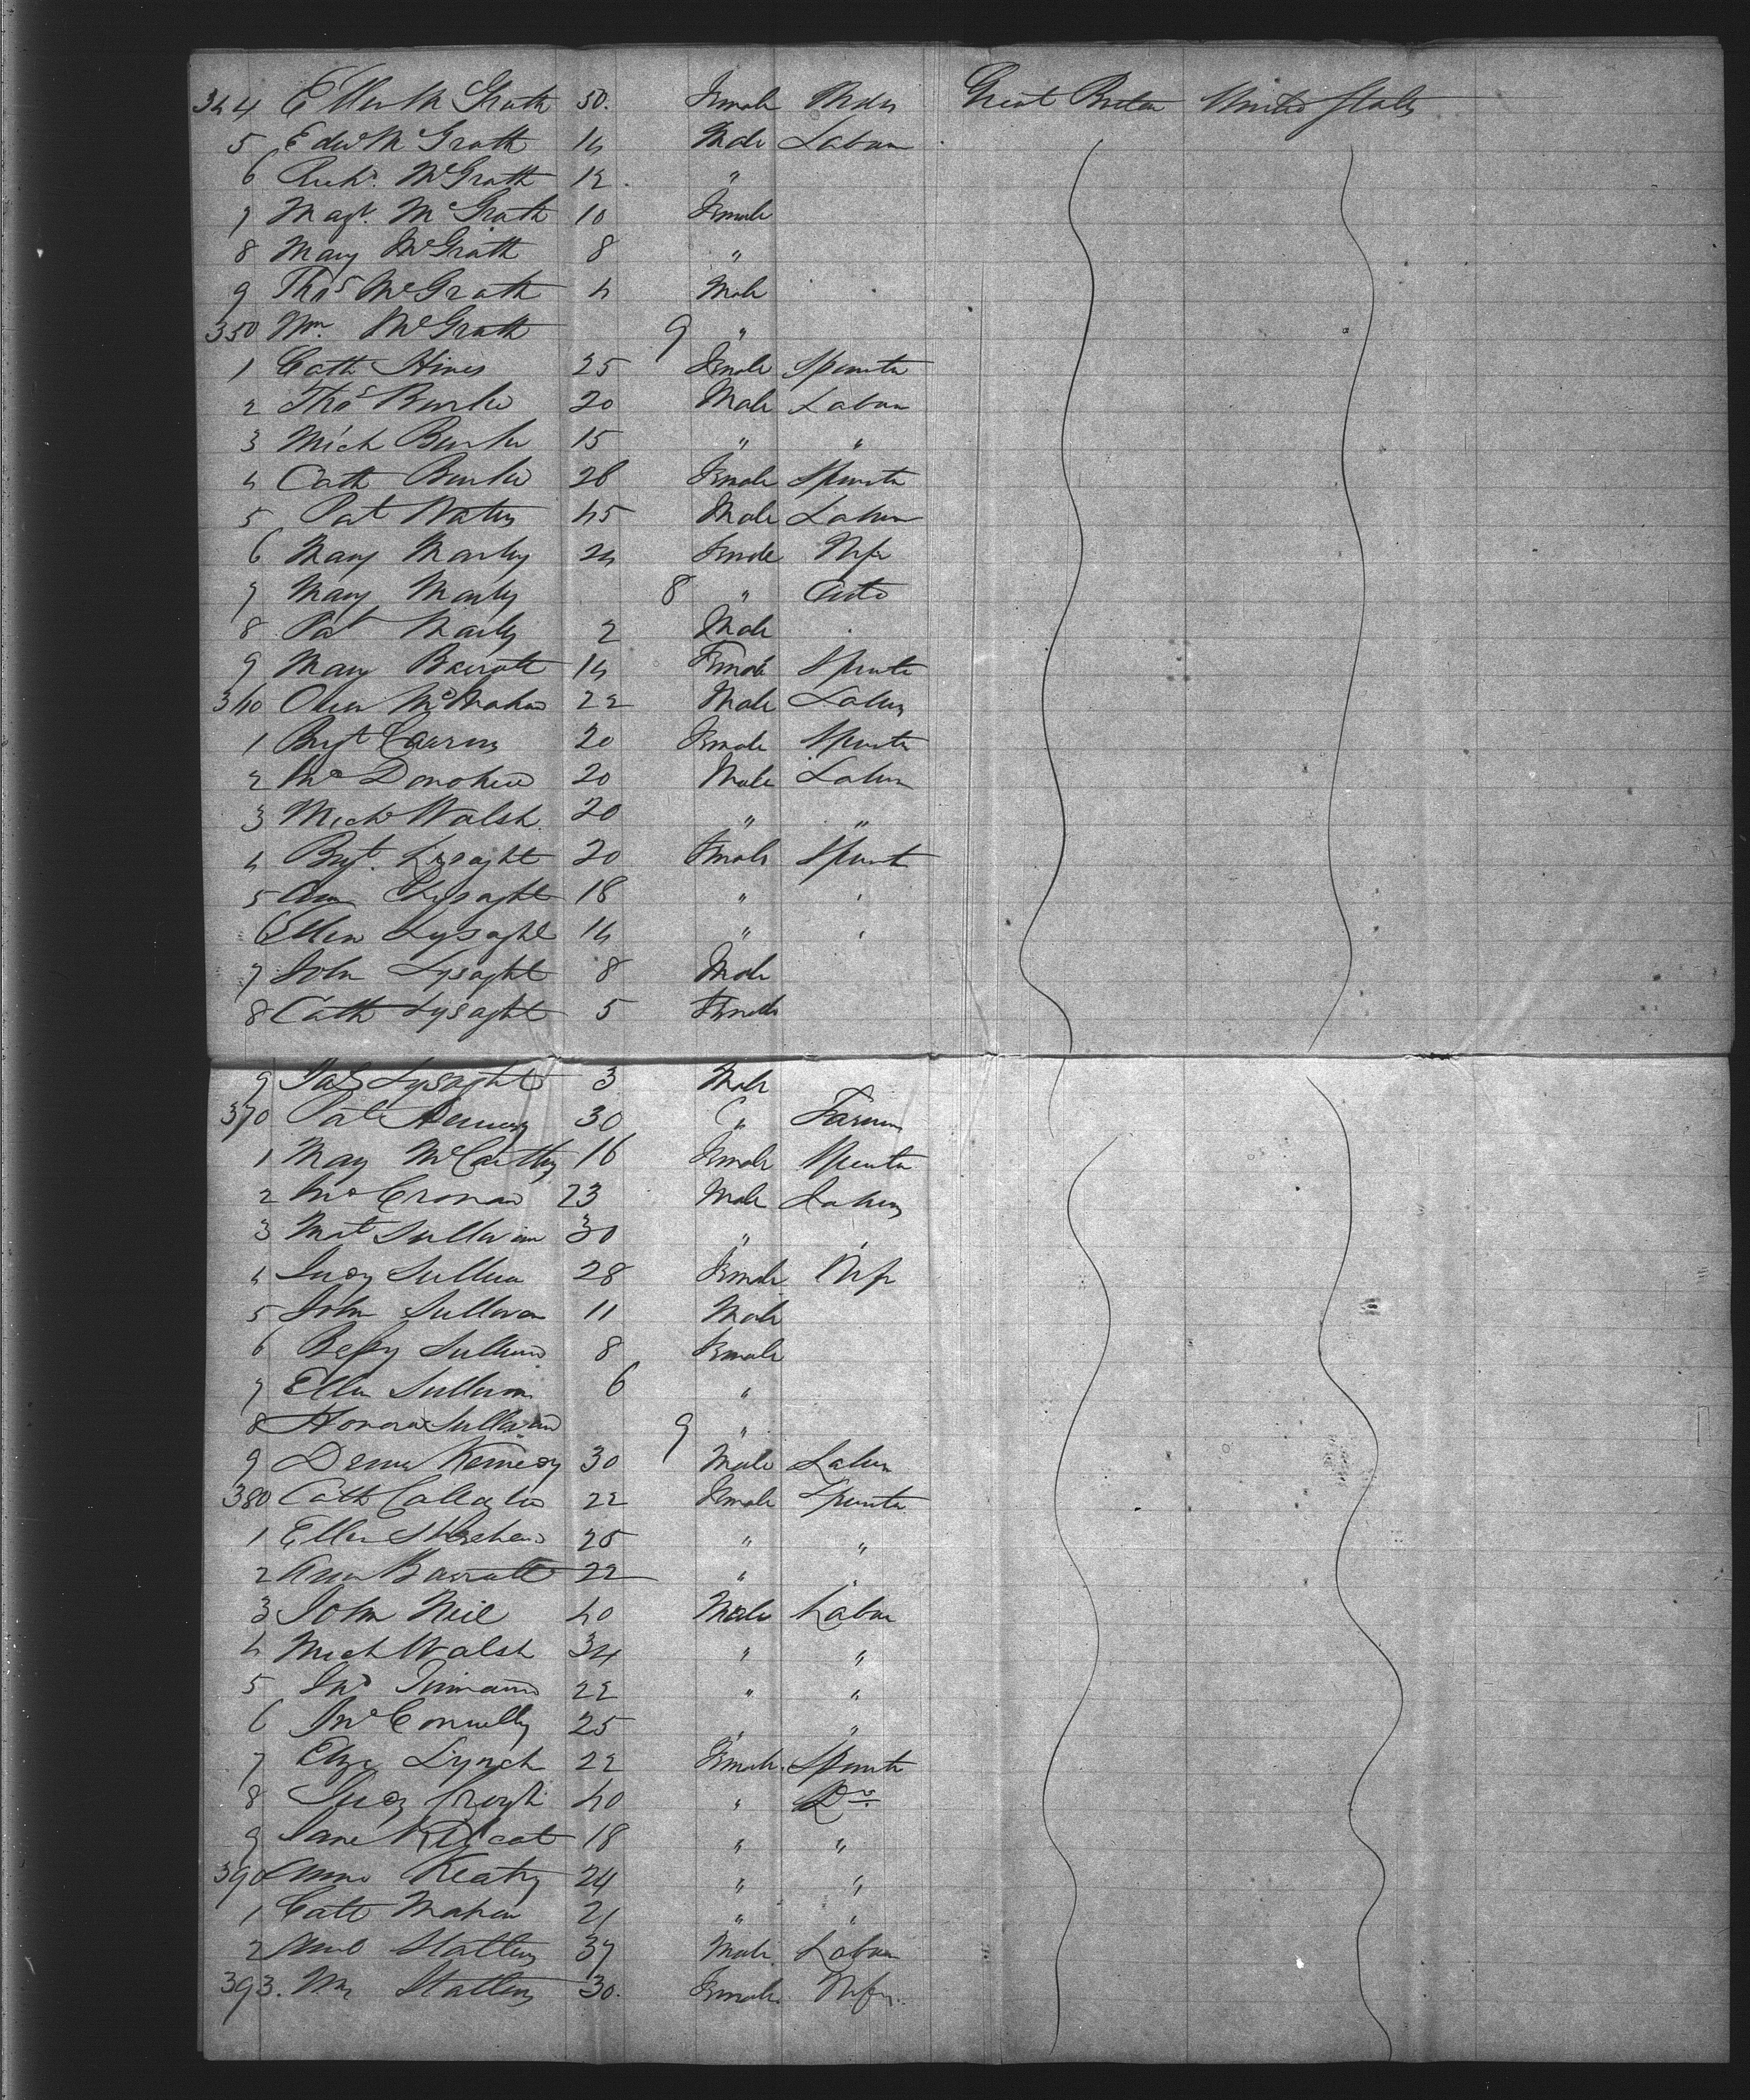 344 Ellen McGrath 50. Female Wdw Great Britain United States
5 Edwd McGrath 14 Male Labour
6 Richd. McGrath 12. "
7 Magt. McGrath 10 Female
8 Mary McGrath 8 "
9 Thos McGrath 4 Male
350 Wm. McGrath 9 "
1 Cath Hines 25 Female Spinster
2 Thos Burke 20 Male Labour
3 Mich Burke 15 " "
4 Cath Burke 26 Female Spinster
5 Pat Waters 45 Male Labour
6 Mary 24 Female Wife
7 Mary 8 "
8 Pat 2 Male
9 Mary Barrott 14 Female Spinster
360 Owen McMahon 22 Male Labour
1 Brgt 20 Female Spinster
2 Jno Donohue 20 Male Labour
3 Michl Walsh 20 " "
4 Brgt. Lysaght 20 Female Spinst
5 Ann Lysaght 18 " "
6 Ellen Lysaght 14 " "
7 John Lysaght 8 Male
8 Cath Lysaght 5 Female
9 Jas Lysaght 3 Male
370 Pat 30 " Farmer
1 Mary McCarthy 16 Female Spinster
2 Jno Cronan 23 Male Labour
3 Mat Sullivan 30 " "
4 Judy Sullivan 28 Female Wife
5 John Sullivan 11 Male
6 Bessy Sullivan 8 Female
7 Ellen Sullivan 6 "
8 Honora Sullivan 9 "
9 Denis Kennedy 30 Male Labour
380 Cath Callaghan 22 Female Spinster
1 Ellen 25 " "
2 Ann Barrott 22 " "
3 John Neil 40 Male Labour
4 Mich Walsh 34 " "
5 Jno 22 " "
6 Jno Connelly 25 " "
7 Eliza Lynch 22 Female Spinster
8 Judy 40 " Do
9 Jane 18 " "
390 Anne Keating 24 " "
1 Cath Mahon 21 " "
2 Slattery 37 Male Labour
393. Slattery 30. Female Wife